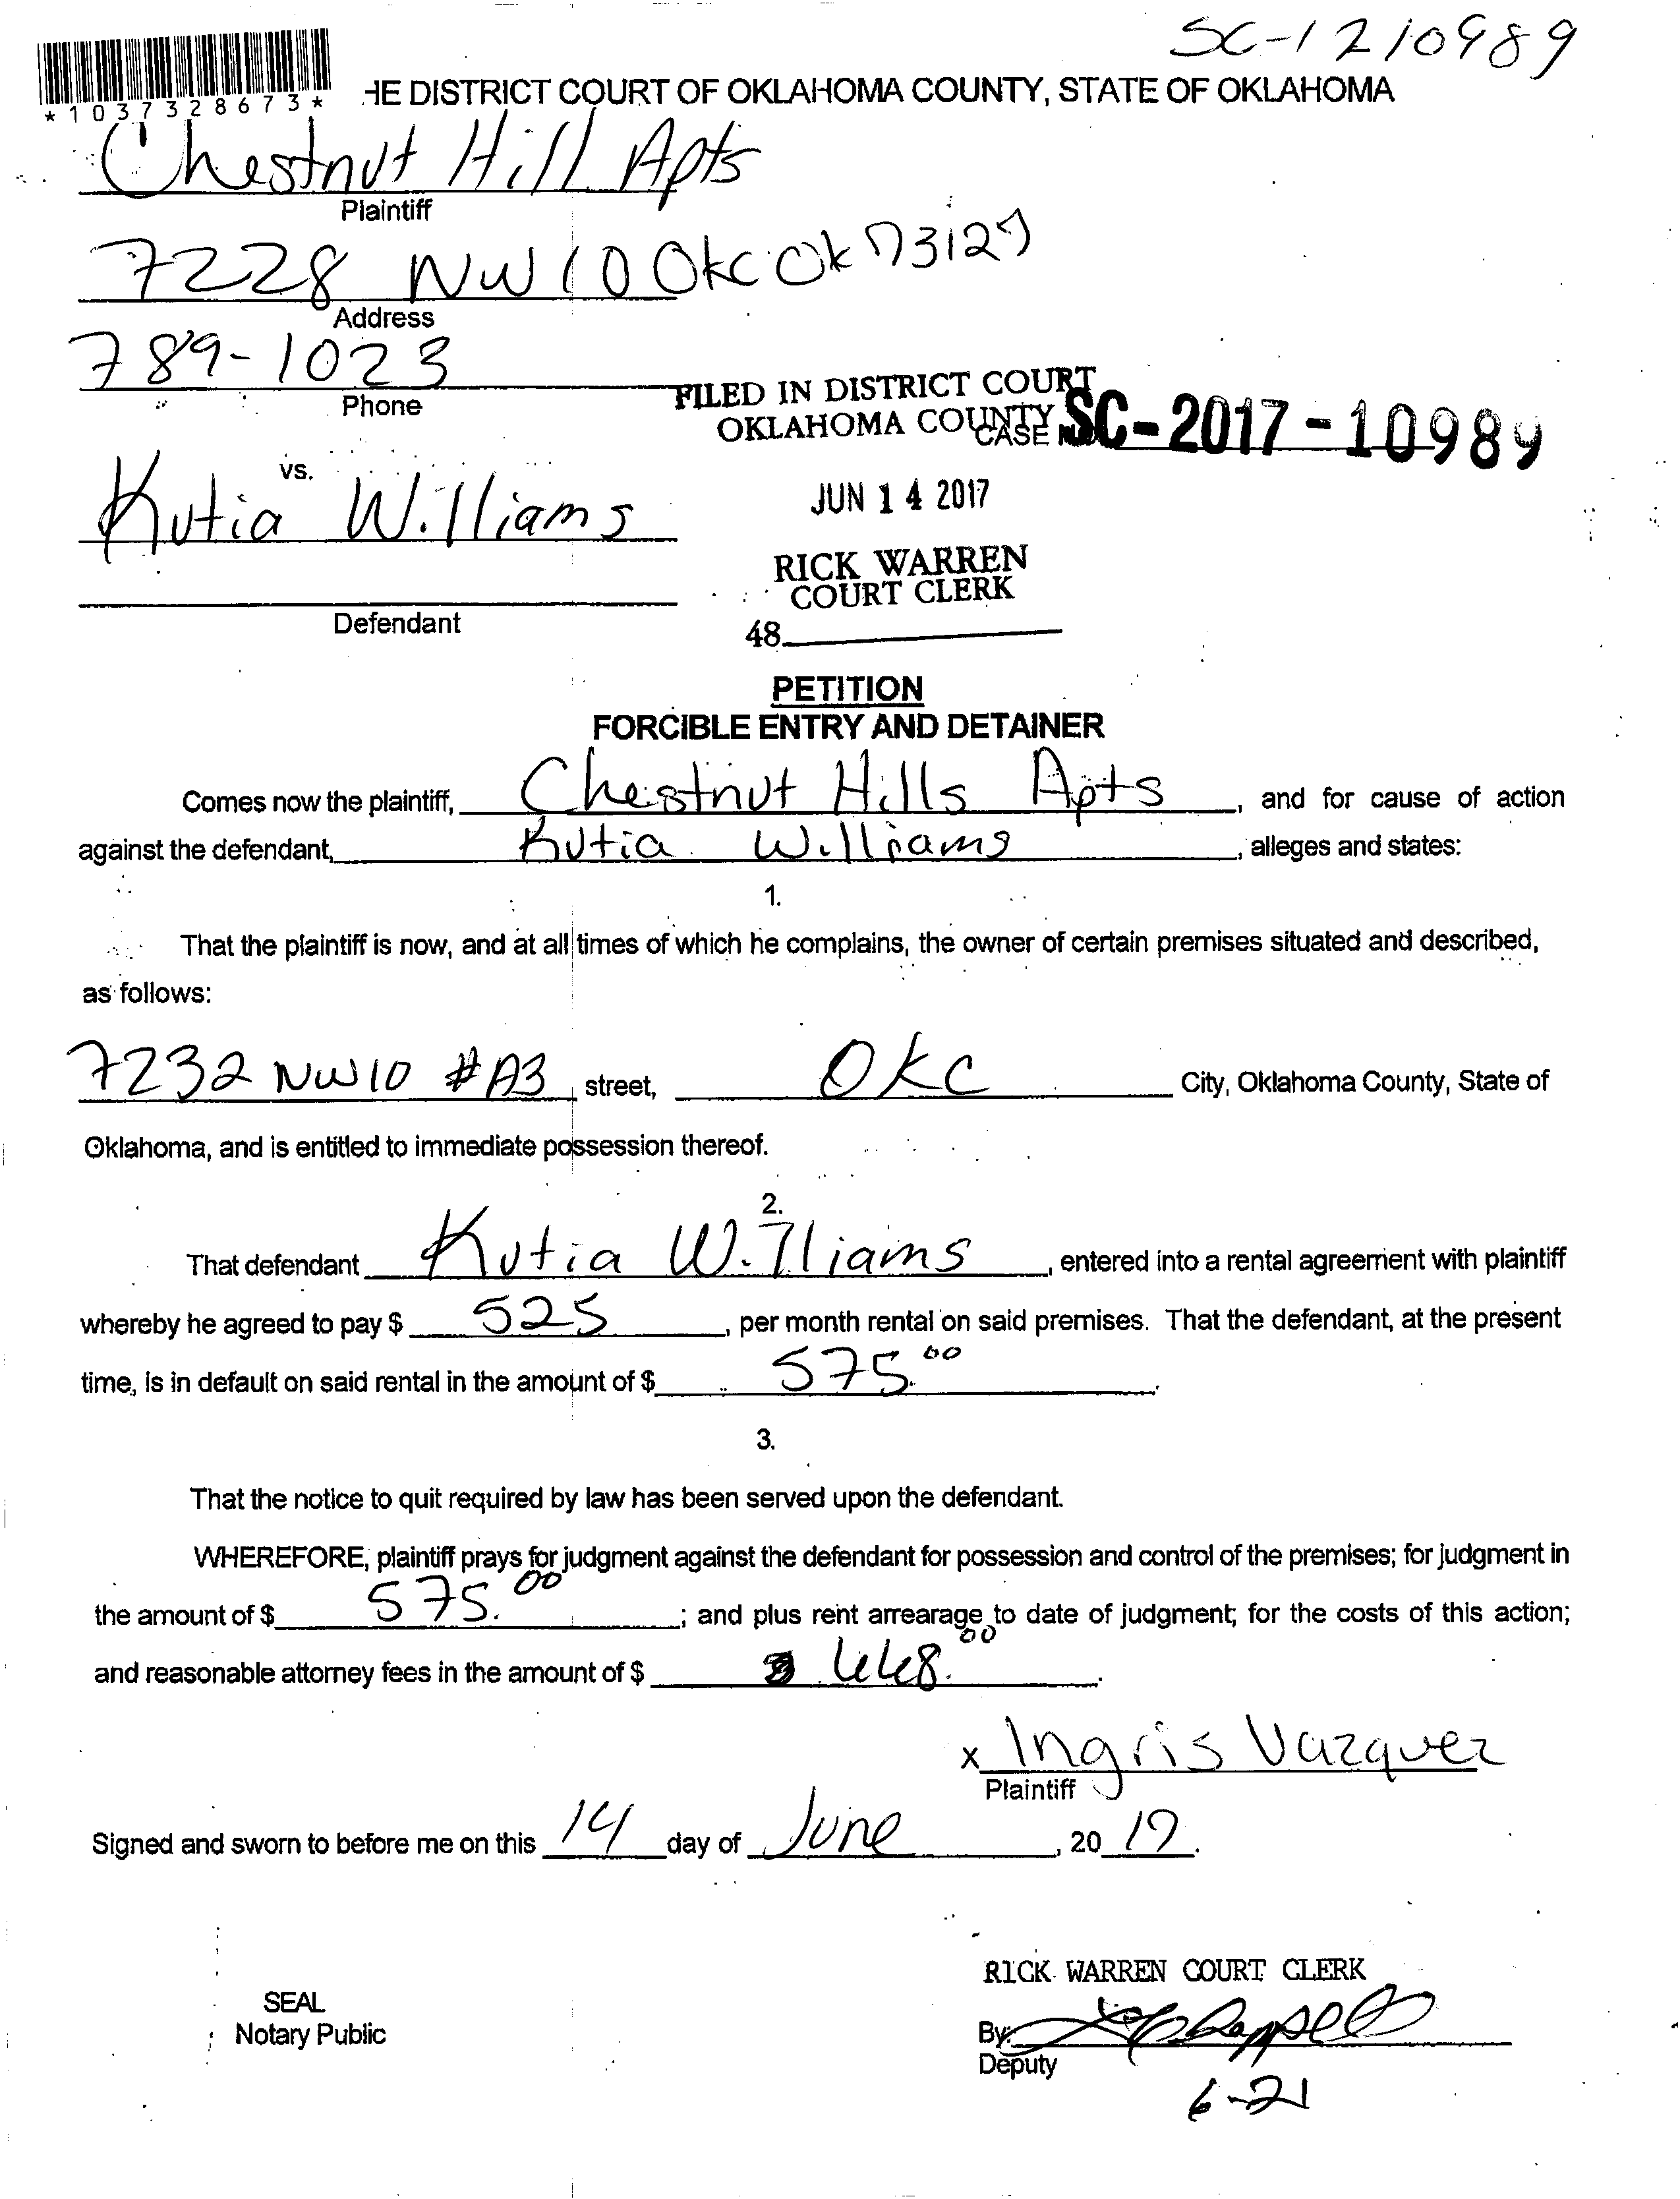 SC-1210989
*1037328673*
HE DISTRICT COURT OF OKLAHOMA COUNTY, STATE OF OKLAHOMA
Chestnut Hill Apts
Plaintiff
7228 NW 10 Okc Ok 73127
Address
789-1023
Phone
FILED IN DISTRICT COURT
OKLAHOMA COUNTY
CASE NO. SC-2017-10989
vs.
Kutia Williams
JUN 14 2017
RICK WARREN
COURT CLERK
Defendant
48
PETITION
FORCIBLE ENTRY AND DETAINER
Comes now the plaintiff, Chestnut Hills Apts, and for cause of action
against the defendant, Kutia Williams, alleges and states:
1.
That the plaintiff is now, and at all times of which he complains, the owner of certain premises situated and described,
as follows:
7232 NW 10 #A3 street, OKC City, Oklahoma County, State of
Oklahoma, and is entitled to immediate possession thereof.
2.
That defendant Kutia Williams, entered into a rental agreement with plaintiff
whereby he agreed to pay $ 525, per month rental on said premises. That the defendant, at the present
time, is in default on said rental in the amount of $ 575.00.
3.
That the notice to quit required by law has been served upon the defendant.
WHEREFORE, plaintiff prays for judgment against the defendant for possession and control of the premises; for judgment in
the amount of $ 575.00; and plus rent arrearage to date of judgment; for the costs of this action;
and reasonable attorney fees in the amount of $
x Ingris Vazquez
Plaintiff
Signed and sworn to before me on this 14 day of June, 2017.
RICK WARREN COURT CLERK
SEAL
Notary Public
By:
Deputy
6-21